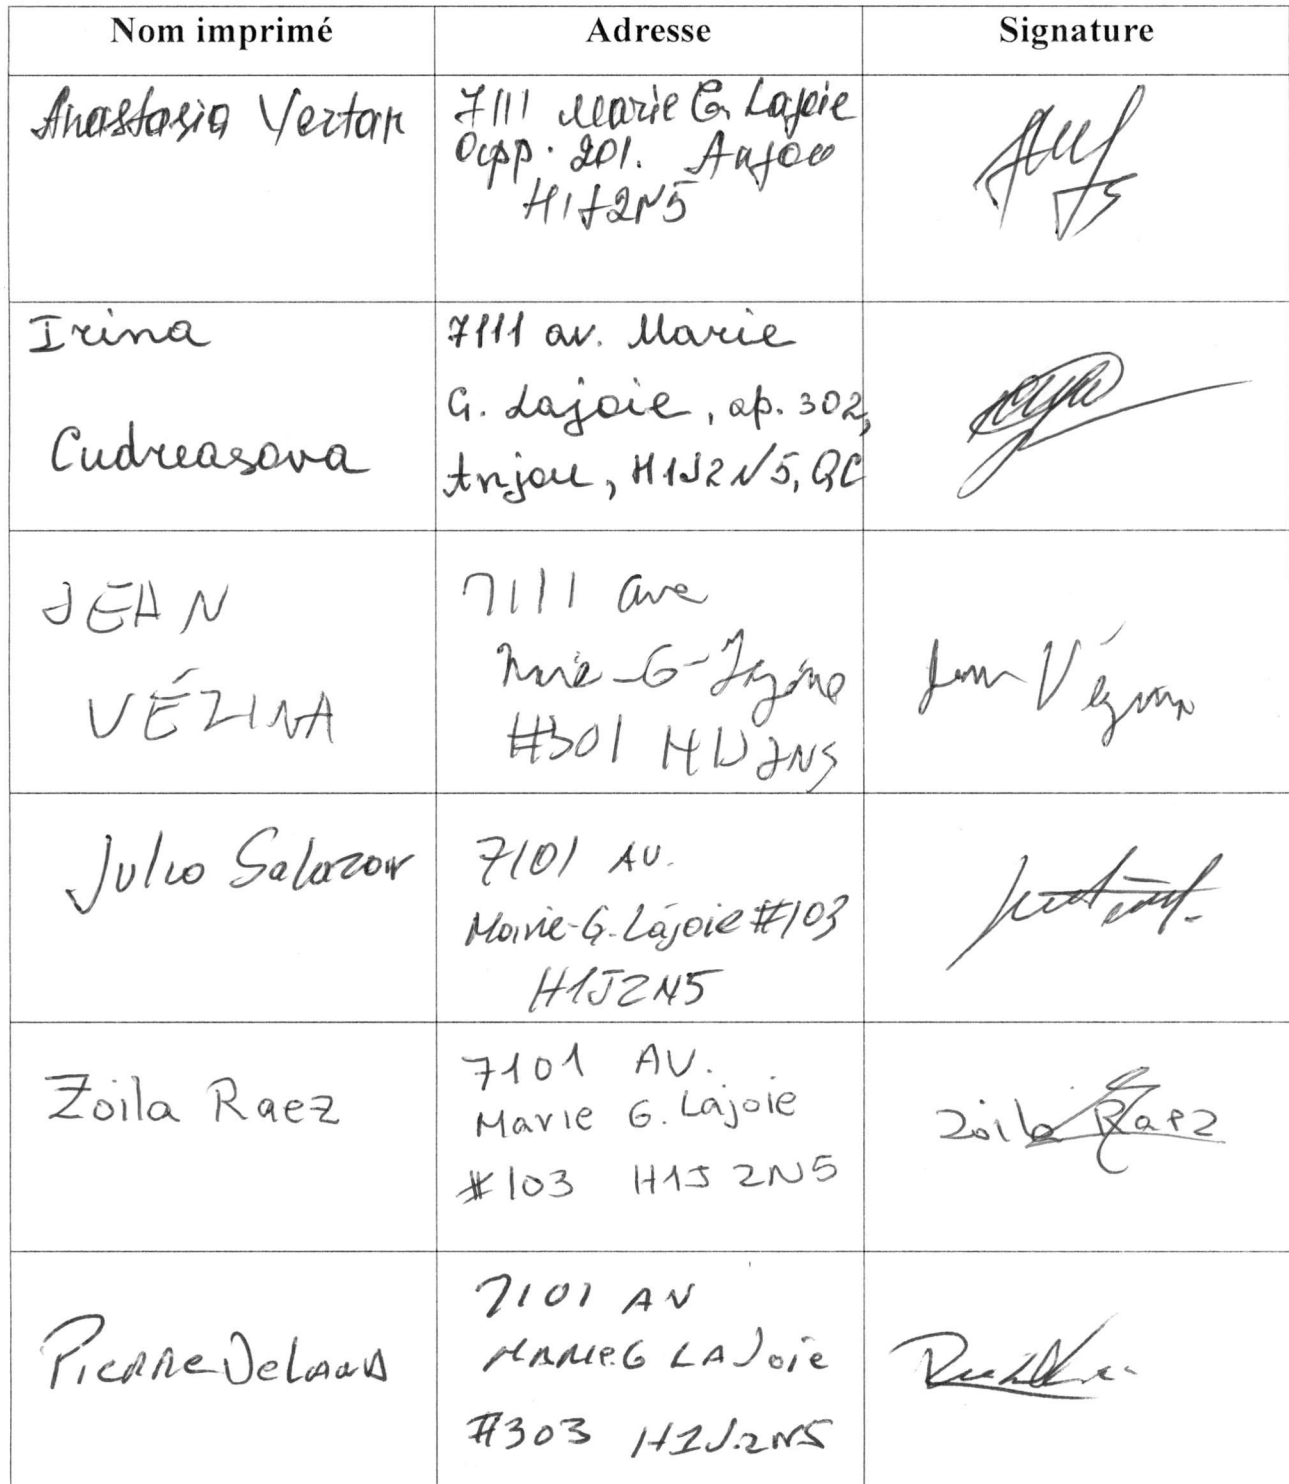 Nom imprimé
Adresse
Signature
Anastasia Vertan
7111 Marie G. Lajoie
app. 201. Anjou
H1J2N5
Irina
Cudreasova
7111 av. Marie
G. Lajoie, ap. 302,
Anjou, H1J2N5, QC
JEAN
VÉZINA
7111 ave
Marie-G-Lajoie
#301 H1J2N5
Jean Vézina
Julio Salazar
7101 AV.
Marie-G. Lajoie #103
H1J2N5
Zoila Raez
7101 AV.
Marie G. Lajoie
#103 H1J 2N5
Zoila Raez
Pierre
7101 AV
MARIE.G LAJoie
#303 H1J.2N5